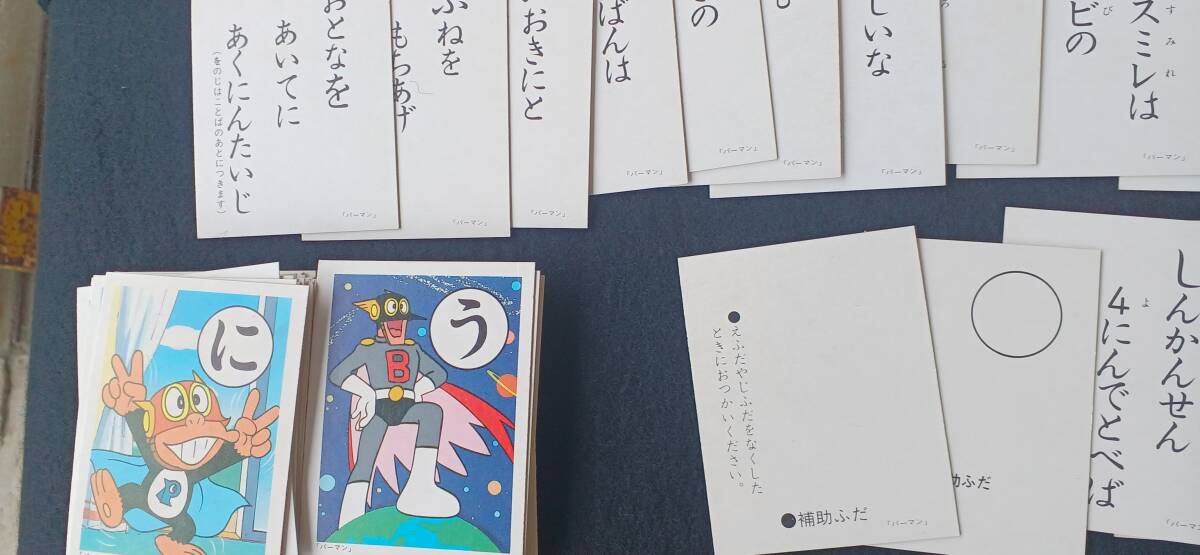 スミレは
すみれ
ビの
び
「パーマン」
「パーマン」
しいな
「パーマン」
「パーマン」
の
「パーマン」
ばんは
「パーマン」
おきにと
「パーマン」
ふねを
もちあげ
「パーマン」
おとなを
あいてに
あくにんたいじ
(をのじはことばのあとにつきます)
「パーマン」
に
う
B
P
「パーマン」
●えふだやじふだをなくした
ときにおつかいください。
●補助ふだ
「パーマン」
助ふだ
しんかんせん
4にんでとべば
よ
「パーマン」